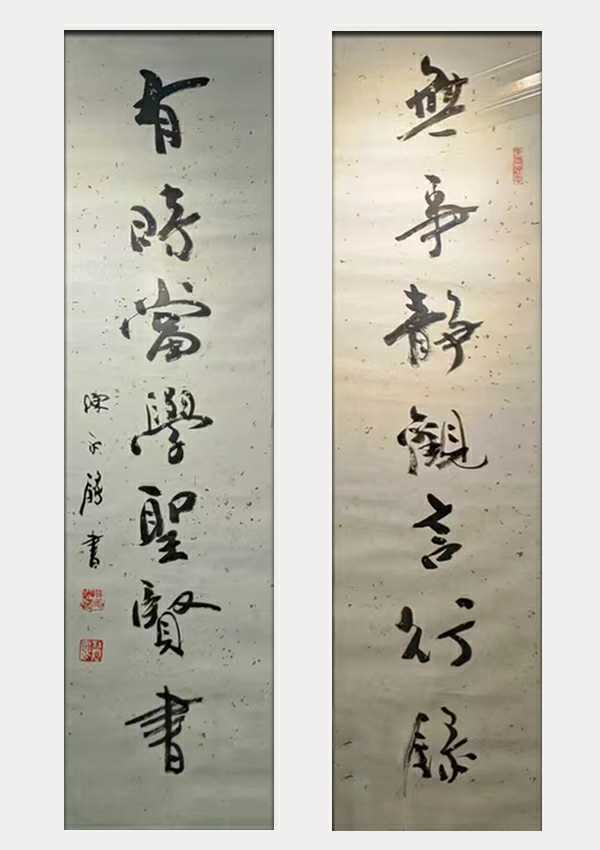 無爭靜觀言行錄
有時當學聖賢書
陳永鏘書